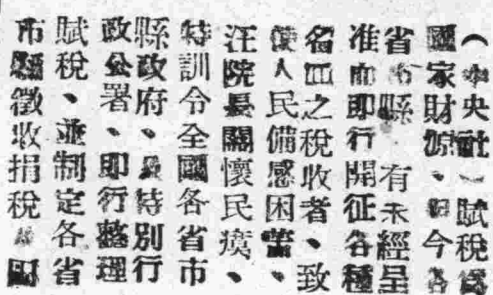 （中央社）賦稅爲
國家財源、現今各
省市縣 有未經呈
准而即行開征各種
名目之稅收者、致
使人民備感困苦、
汪院長關懷民瘼、
特訓令全國各省市
縣政府、及特別行
政公署、即行整理
賦稅、並制定各省
市縣徵收捐稅